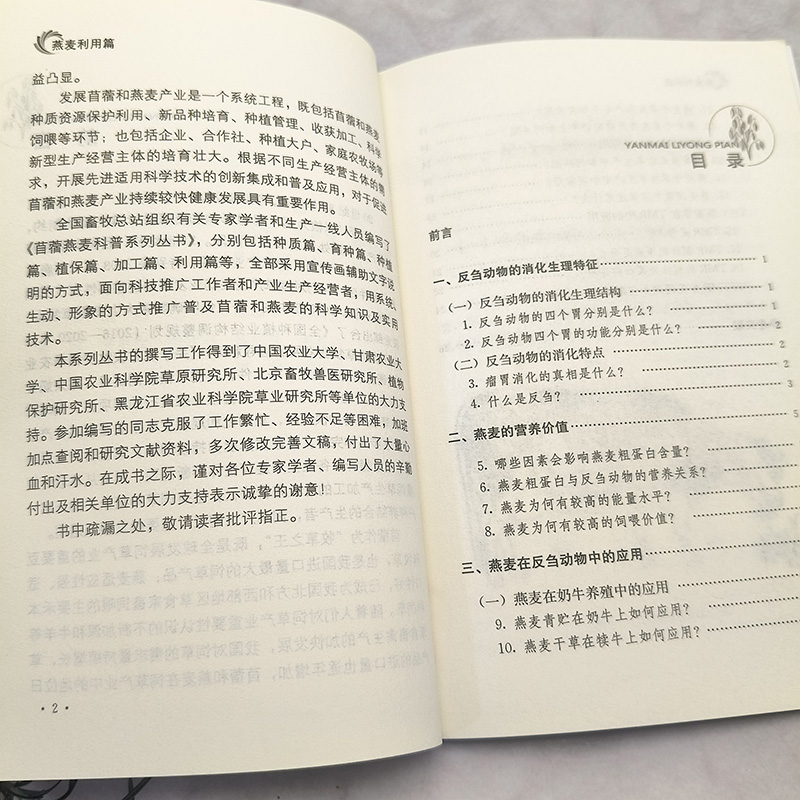 燕麦利用篇
益凸显。
发展苜蓿和燕麦产业是一个系统工程，既包括苜蓿和燕麦
种质资源保护利用、新品种培育、种植管理、收获加工、科学
饲喂等环节；也包括企业、合作社、种植大户、家庭农牧场等
新型生产经营主体的培育壮大。根据不同生产经营主体的需
求，开展先进适用科学技术的创新集成和普及应用，对于促进
苜蓿和燕麦产业持续较快健康发展具有重要作用。
全国畜牧总站组织有关专家学者和生产一线人员编写了
《苜蓿燕麦科普系列丛书》，分别包括种质篇、育种篇、种植
篇、植保篇、加工篇、利用篇等，全部采用宣传画辅助文字说
明的方式，面向科技推广工作者和产业生产经营者，用系统、
生动、形象的方式推广普及苜蓿和燕麦的科学知识及实用
技术。
本系列丛书的撰写工作得到了中国农业大学、甘肃农业大
学、中国农业科学院草原研究所、北京畜牧兽医研究所、植物
保护研究所、黑龙江省农业科学院草业研究所等单位的大力支
持。参加编写的同志克服了工作繁忙、经验不足等困难，加班
加点查阅和研究文献资料，多次修改完善文稿，付出了大量心
血和汗水。在成书之际，谨对各位专家学者、编写人员的辛勤
付出及相关单位的大力支持表示诚挚的谢意！
书中疏漏之处，敬请读者批评指正。
· 2 ·
YANMAI LIYONG PIAN
目 录
前言
一、反刍动物的消化生理特征 1
（一）反刍动物的消化生理结构 1
1. 反刍动物的四个胃分别是什么？ 1
2. 反刍动物四个胃的功能分别是什么？ 2
（二）反刍动物的消化特点 2
3. 瘤胃消化的真相是什么？ 2
4. 什么是反刍？ 3
二、燕麦的营养价值 5
5. 哪些因素会影响燕麦粗蛋白含量？
6. 燕麦粗蛋白与反刍动物的营养关系？
7. 燕麦为何有较高的能量水平？
8. 燕麦为何有较高的饲喂价值？
三、燕麦在反刍动物中的应用
（一）燕麦在奶牛养殖中的应用
9. 燕麦青贮在奶牛上如何应用？
10. 燕麦干草在犊牛上如何应用？